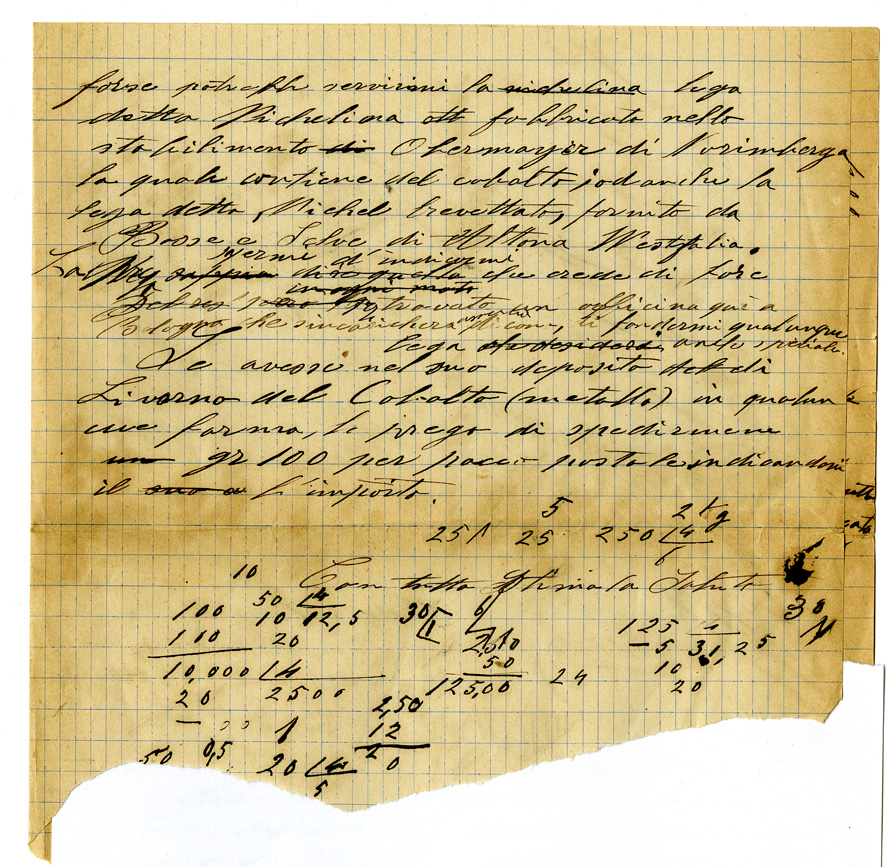 forse potrebbe servirmi la nichelina lega
detta Nichelina ott fabbricato nello
stabilimento di Obermayer di Norimberga
la quale contiene del cobalto; od anche la
lega detta Nichel brevettato, fornito da
Basse e Selve di Altona Westfalia.
permi d'indicarmi
La sappia dire quella che crede di fare
in ogni modo
ho trovato un officina qui a
Bologna che s'incaricherà di fondermi qualunque
lega che desideri anche speciale.
Se avesse nel suo deposito di
Livorno del Cobalto (metallo) in qualun
que forma, la prego di spedirmene
un gr 100 per pacco postale indicandomi
il suo a l'importo.
5 2 Kg
251 25 250 4
6
10 Con tutta stima la saluto
50 4 30
100 10 12,5 30 6 125
110 20 2,50 5 31,25
50 10
10,000 4 125,00 24 20
20 2500 2,50
1 12
50 0,5 20 4 20
5